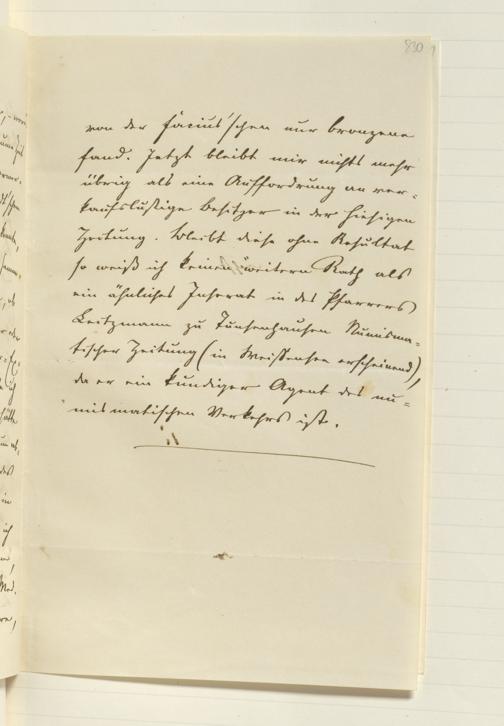 830
von der Facius'schen nur bronzene
fand. Jetzt bleibt mir nichts mehr
übrig als eine Aufforderung an ver-
kaufslustige Besitzer in der hiesigen
Zeitung. Bleibt diese ohne Resultat
so weiß ich keinen weitern Rath als
ein ähnliches Inserat in des Pfarrers
Leitzmann zu Tunzenhausen Numisma-
tischer Zeitung (in Weissensee erscheinend),
da er ein kundiger Agent des nu-
mismatischen Verkehrs ist.